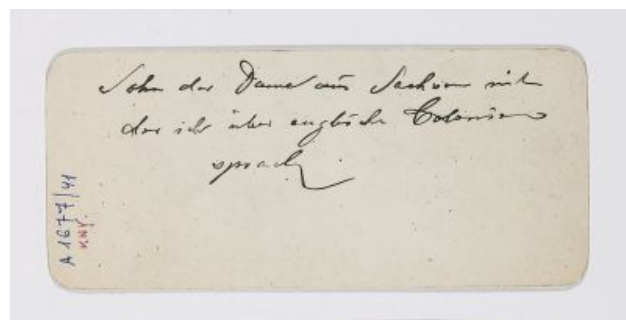 Sohn der Dame aus Sachsen mit
der ich über englische Colonien
sprach
A 1677/41